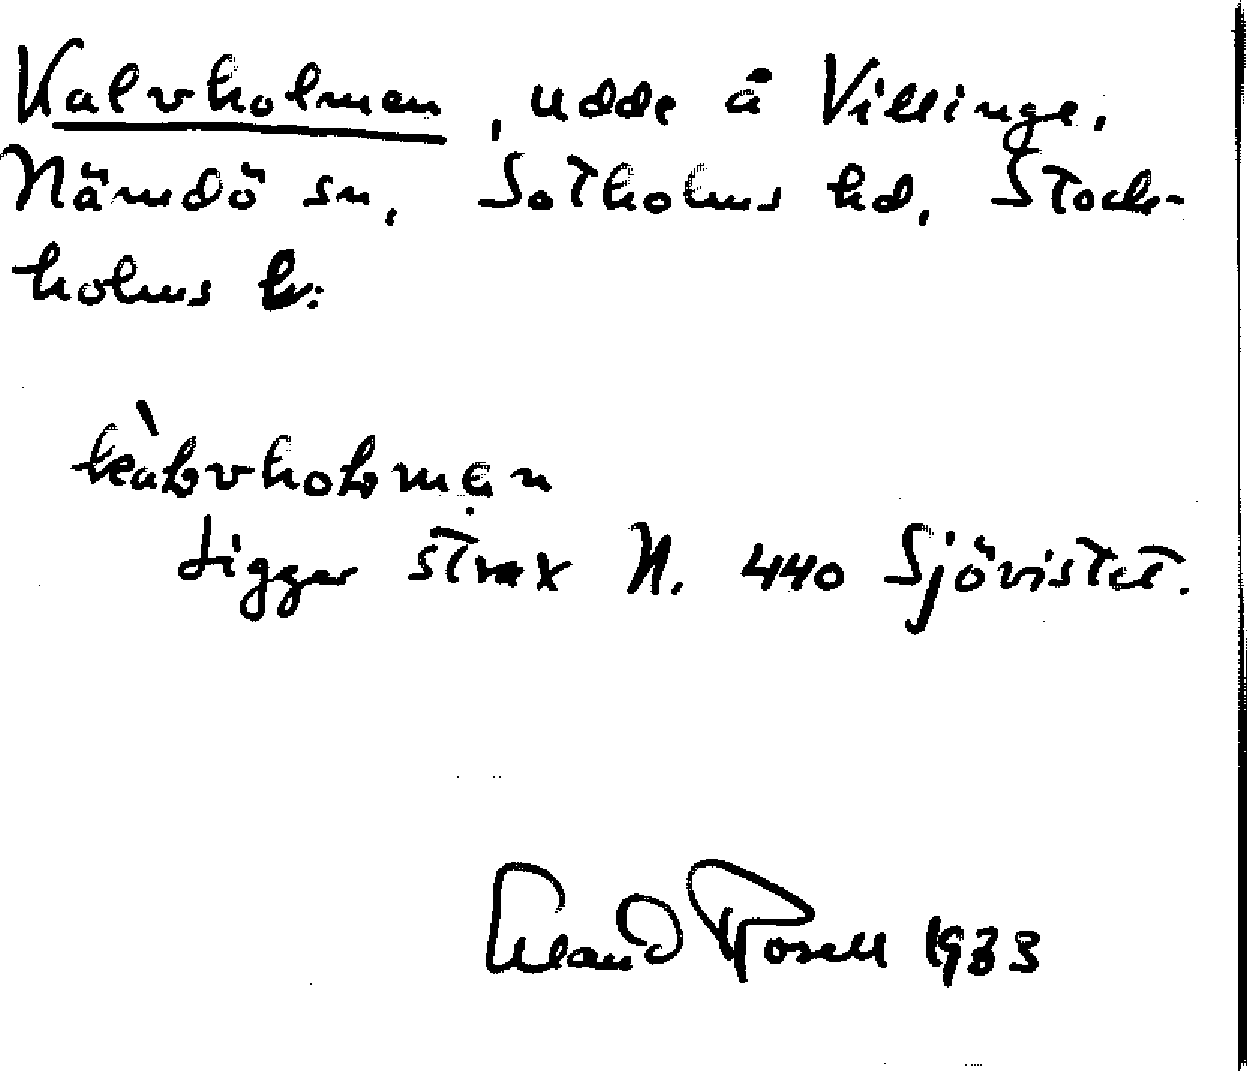 Kalvholmen, udde å Villinge,
Nämdö sn, Sotholms hd, Stock-
holms l:
kàlvholmen
Ligger strax N. 440 Sjövistet.
Erland Rosell 1933